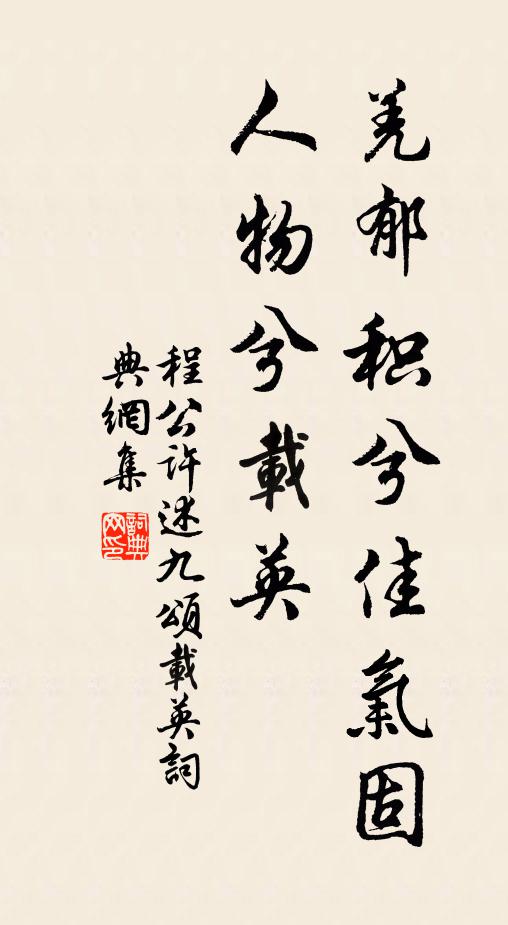 羌郁积兮佳氣固
人物兮載英
程公许述九頌載英詞
典網集
詞典
网印